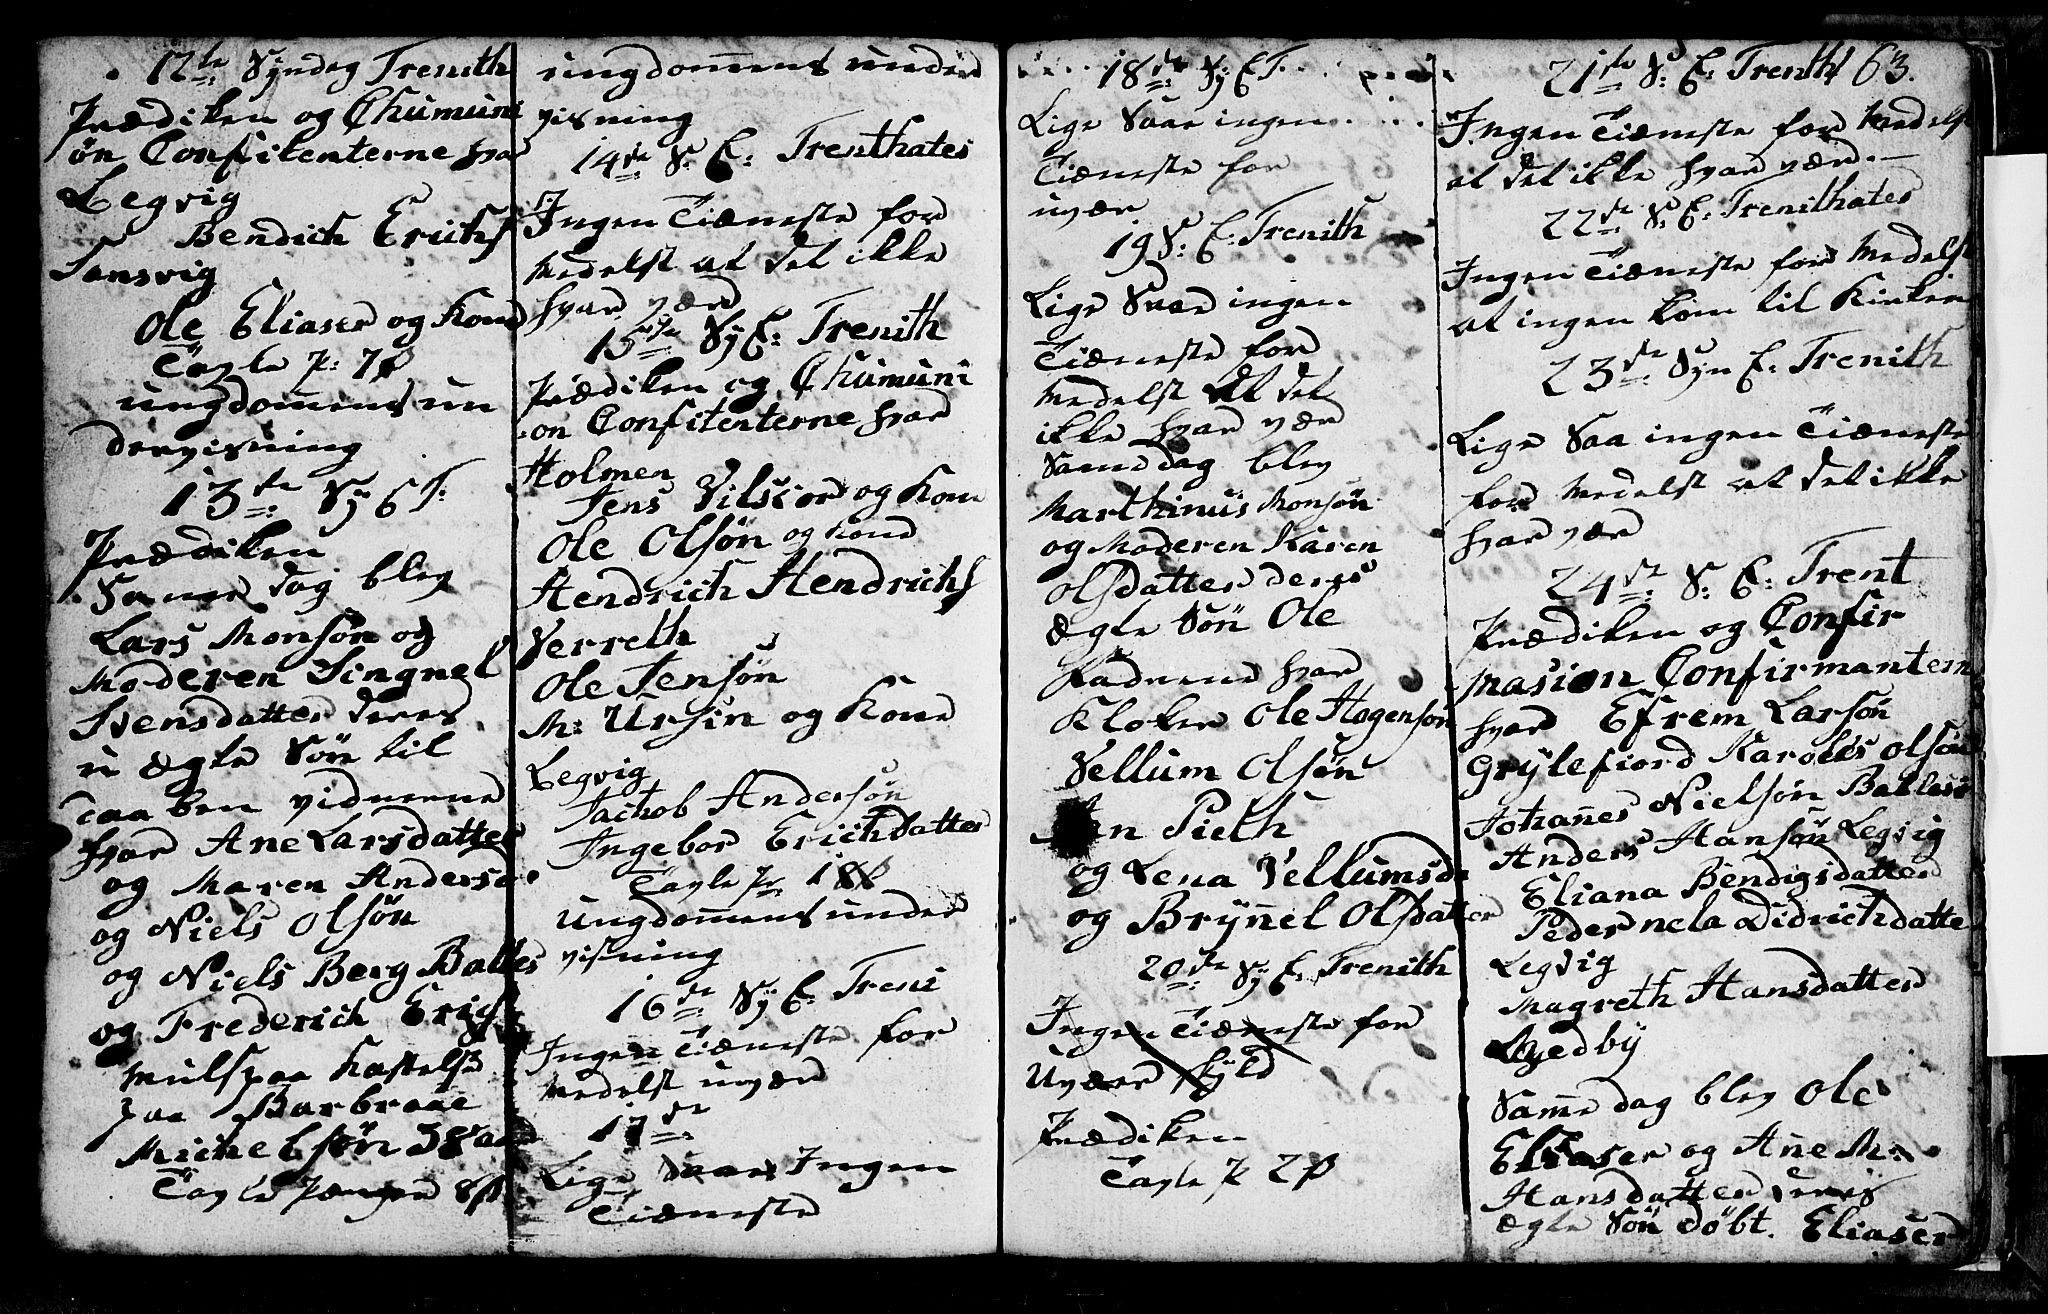 12te Syndag Trenith
Prædiken og Chumuni
on Confitenterne hvar
Legvig
Bendich Erichs
Sansvig
Ole Eliaser og Kone
Tavle p: 7 ß
ungdomens un
dervisning
13de Sy E T:
Prædiken
Samme dag blev
Lars Monsøn og
Moderen Singnel
Ivensdatter deres
u ægte Søn til
daaben vidnerne
hvar Ane Larsdatter
og Maren Anders
og Niels Olsøn
og Niels Berg Baltes
og Frederich Erigs
paa Barbraae
Michelsøn 38 aar
Tavle Penger 8 ß
ungdomens under
visning
14de S: E: Trenthates
Ingen Tiæneste for
Medelst at det ikke
hvar vær
15de Sy E: Trenith
Prædiken og Chumuni
on Confitenterne hvar
Holmen
Jens Vilsior og Kone
Ole Olsøn og Kone
Hendrich Hendrichs
Verreth
Ole Jensøn
M: Ursin og Kone
Legvig
Jachob Andersøn
Ingebor Erichdatter
Tavle P 18 ß
Ungdomens under
visning
16de Sy E: Treni
Ingen Tiæneste for
Medelst uvær
17de
Lige saar Ingen
Tiæneste
18de Sy E T.
Lige Saar ingen
Tiæneste for
uvær
19 S: E: Trenith
Lige Saar ingen
Tiæneste for
Medelst at det
ikke hvar vær
Samedag blev
Marthinus Monsøn
og Moderen Karen
Olsdatter deres
Ægte Søn Ole
Fadrene hvar
Kloker Ole Hogensøn
Vellum Olsøn
Pieth
og Lena Vellumsd
og Brynel Olsdatter
20de Sy E: Trenith
Ingen Tiæneste for
Uvær skyld
Prædiken
Tavle P 2 ß
21de S: E: Trenith 63.
Ingen Tiæneste for Medelst
at det ikke hvar vær
22de S: E: Trenithates
Ingen Tiæneste for Medelst
at ingen kom til Kirken
23de Syn E: Trenith
Lige Saa ingen Tiæneste
for Medelst at det ikke
hvar vær
24de S: E: Trent
Prædiken og Confir
masion Confirmantern
hvar Efrem Larsøn
Gryllefiord Karolus Olsøn
Johanes Nielsøn
Anders Hansøn Legvig
Eliana Bendigsdatter
Pedernela Didrichdatte
Legvig
Magreth Hansdatter
Samme dag blev Ole
Eliaser og Ane M:
Hansdatter deres
ægte Søn døbt. Eliaser